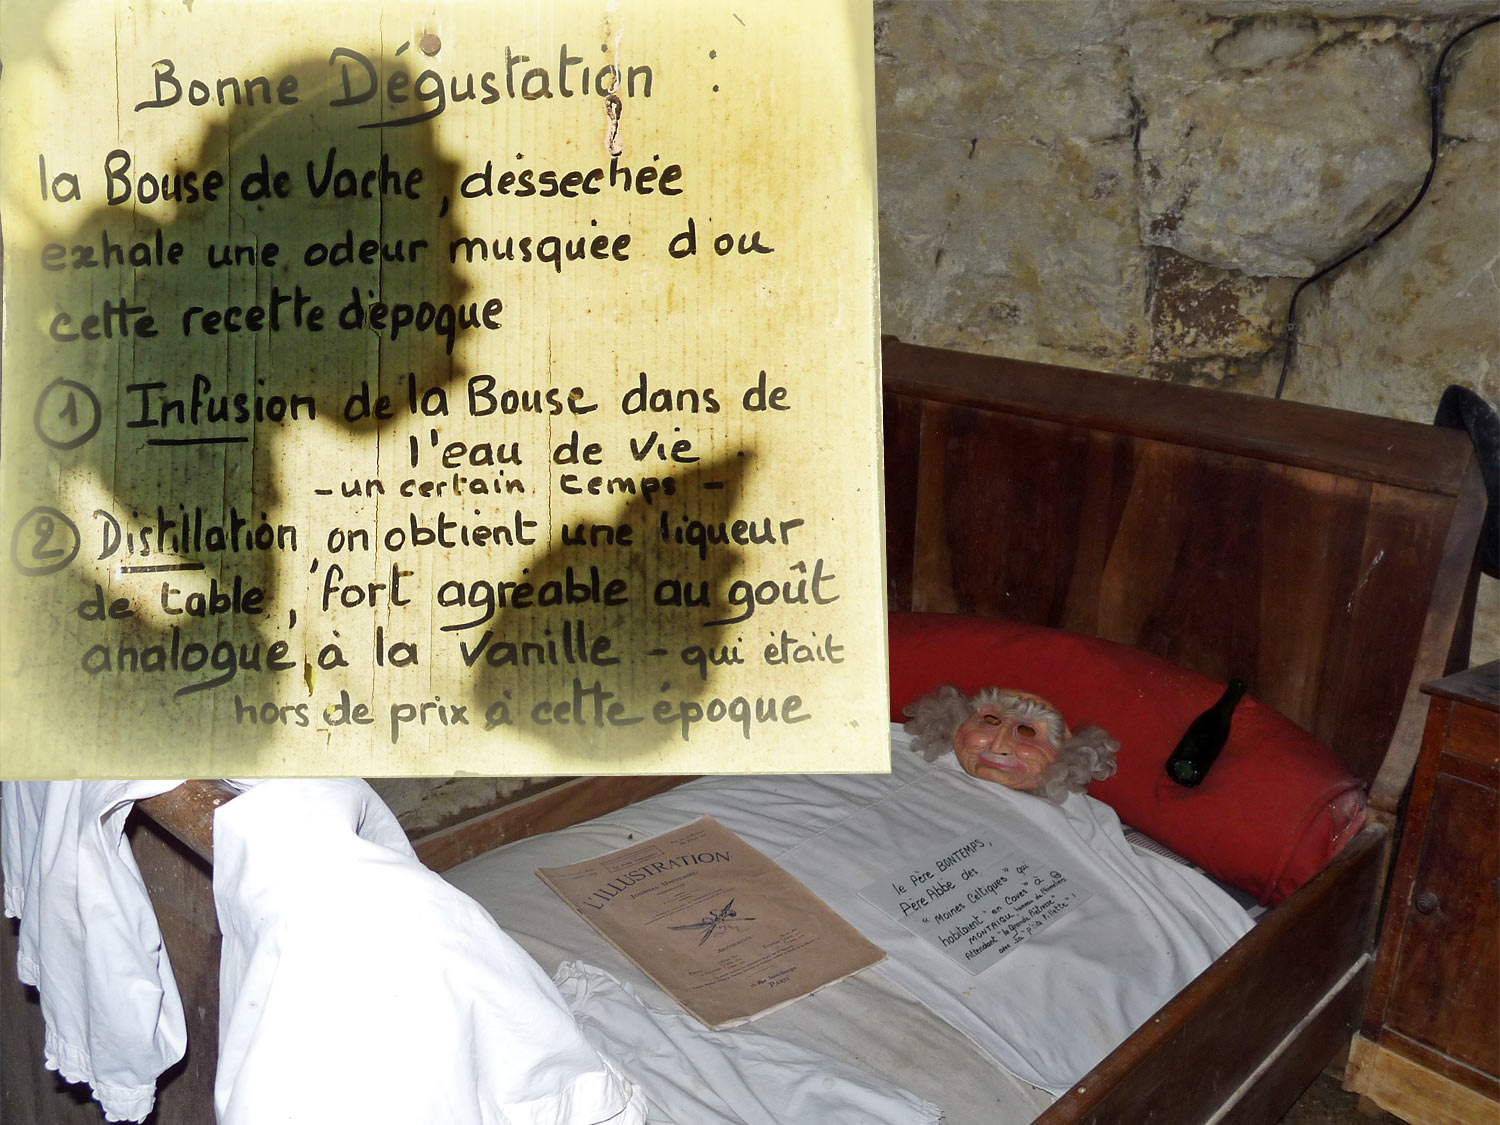 Bonne Dégustation :
la Bouse de Vache, désséchée
exhale une odeur musquée d ou
cette recette d'époque
1 Infusion de la Bouse dans de
l'eau de vie
- un certain temps -
2 Distillation on obtient une liqueur
de table, fort agréable au goût
analogue à la vanille - qui était
hors de prix à cette époque
L'ILLUSTRATION
JOURNAL
PARIS
le Père BONTEMPS,
Père Abbé des
"Moines Celtiques" qui
habitaient "en Caves" à
MONTAIGU,
Attendant "la Grande Prêtresse"
avec sa "p'tite Fillette" !